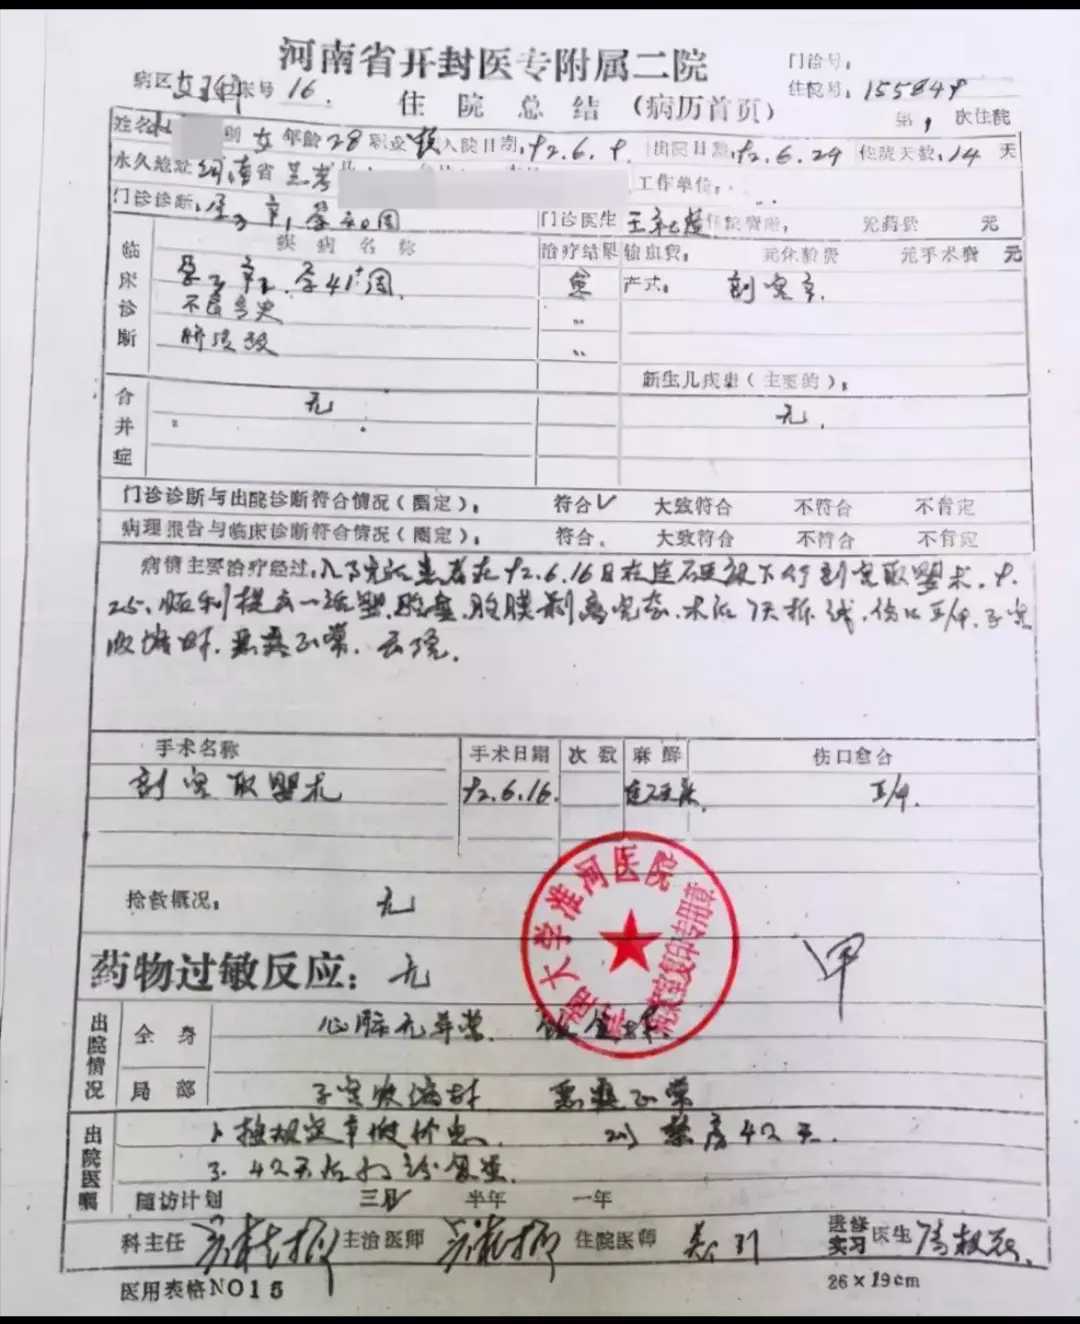 河南省开封医专附属二院
门诊号:
病区 女科 床号 16.
住院号, 155849
住院总结(病历首页)
第 1 次住院
姓名 别 女 年龄 28 职业 入院日期, 92.6.9. 出院日期, 92.6.29 住院天数, 14 天
永久地址 河南省兰考 工作单位,
门诊诊断, 孕3产1孕40周 门诊医生 住院费用, 元药费 元
临床诊断
疾病名称 治疗结果 输血费, 元化验费 元手术费 元
孕3产2.孕41⁺周. 愈 产式: 剖宫产.
不良孕史 〃
脐 〃
新生儿疾患(主要的),
合并症 无 无.
门诊诊断与出院诊断符合情况(圈定), 符合✓ 大致符合 不符合 不肯定
病理报告与临床诊断符合情况(圈定), 符合. 大致符合 不符合 不肯定
病情主要治疗经过, 入院后患者在92.6.16日在连硬麻下行剖宫取婴术. 9.
25.顺利提出一活婴.胎盘.胎膜剥离完整.术后7天拆线.伤口II/甲.子宫
收缩好.恶露正常.出院.
手术名称 手术日期 次数 麻醉 伤口愈合
剖宫取婴术 92.6.16. 连硬麻. II/甲.
抢救概况: 无
药物过敏反应: 无
甲
大学淮河医院
病案室复印专用章
出院情况
全身 心肺无异常.
局部 子宫收缩好 恶露正常
出院医嘱
1. 按规定产假休息. 2. 禁房42天.
3. 42天后门诊复查.
随访计划 三月 半年 一年
科主任 主治医师 住院医师 进修实习医生
医用表格NO15
26×19cm